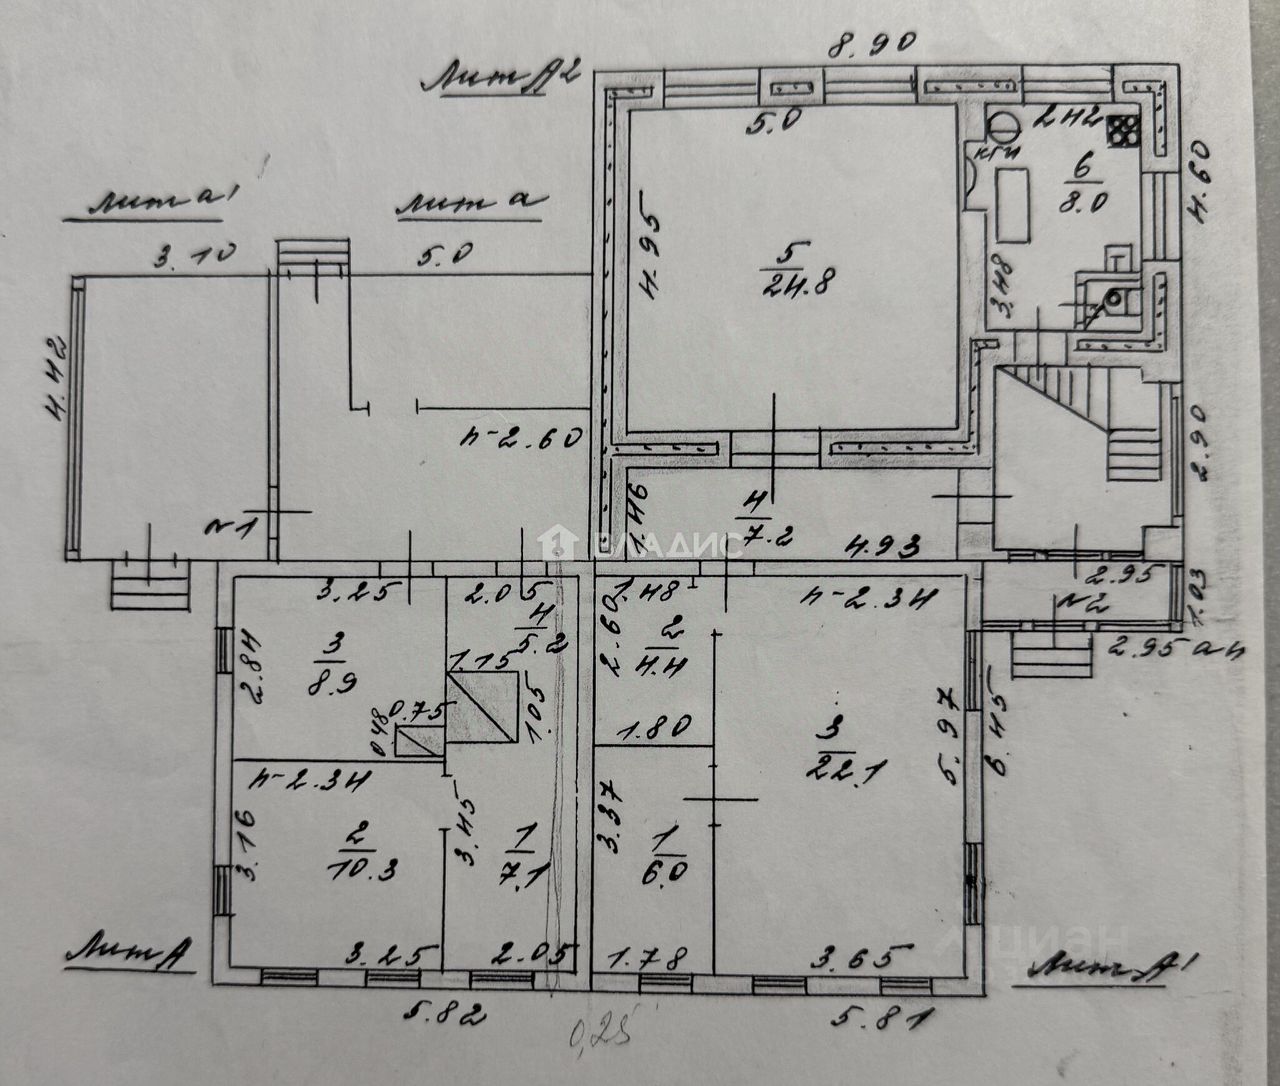 8.90
Лит А2
5.0
2.42
КГИ
6
8.0
4.60
Лит а'
Лит а
3.10
5.0
4.95
5
24.8
3.48
4.42
h-2.60
2.90
№1
1.46
4
7.2
4.93
ВЛАДИС
3.25
2.05
1.48
h-2.34
2.95
№2
1.03
2.95
2.84
3
8.9
4
5.2
1.15
2.60
2
4.4
0.75
0.48
1.05
1.80
3
22.1
5.97
6.45
h-2.34
3.16
2
10.3
3.45
1
7.1
3.37
1
6.0
Лит А
3.25
2.05
1.78
3.65
Лит А'
5.82
0,25
5.81